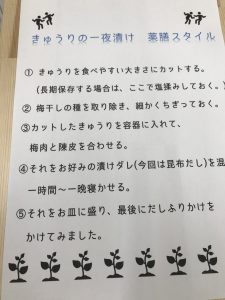 きゅうりの一夜漬け 薬膳スタイル
① きゅうりを食べやすい大きさにカットする。
(長期保存する場合は、ここで塩揉みしておく。)
② 梅干しの種を取り除き、細かくちぎっておく。
③カットしたきゅうりを容器に入れて、
梅肉と陳皮を合わせる。
④それをお好みの漬けダレ(今回は昆布だし)を混
一時間～一晩寝かせる。
⑤それをお皿に盛り、最後にだしふりかけを
かけてみました。